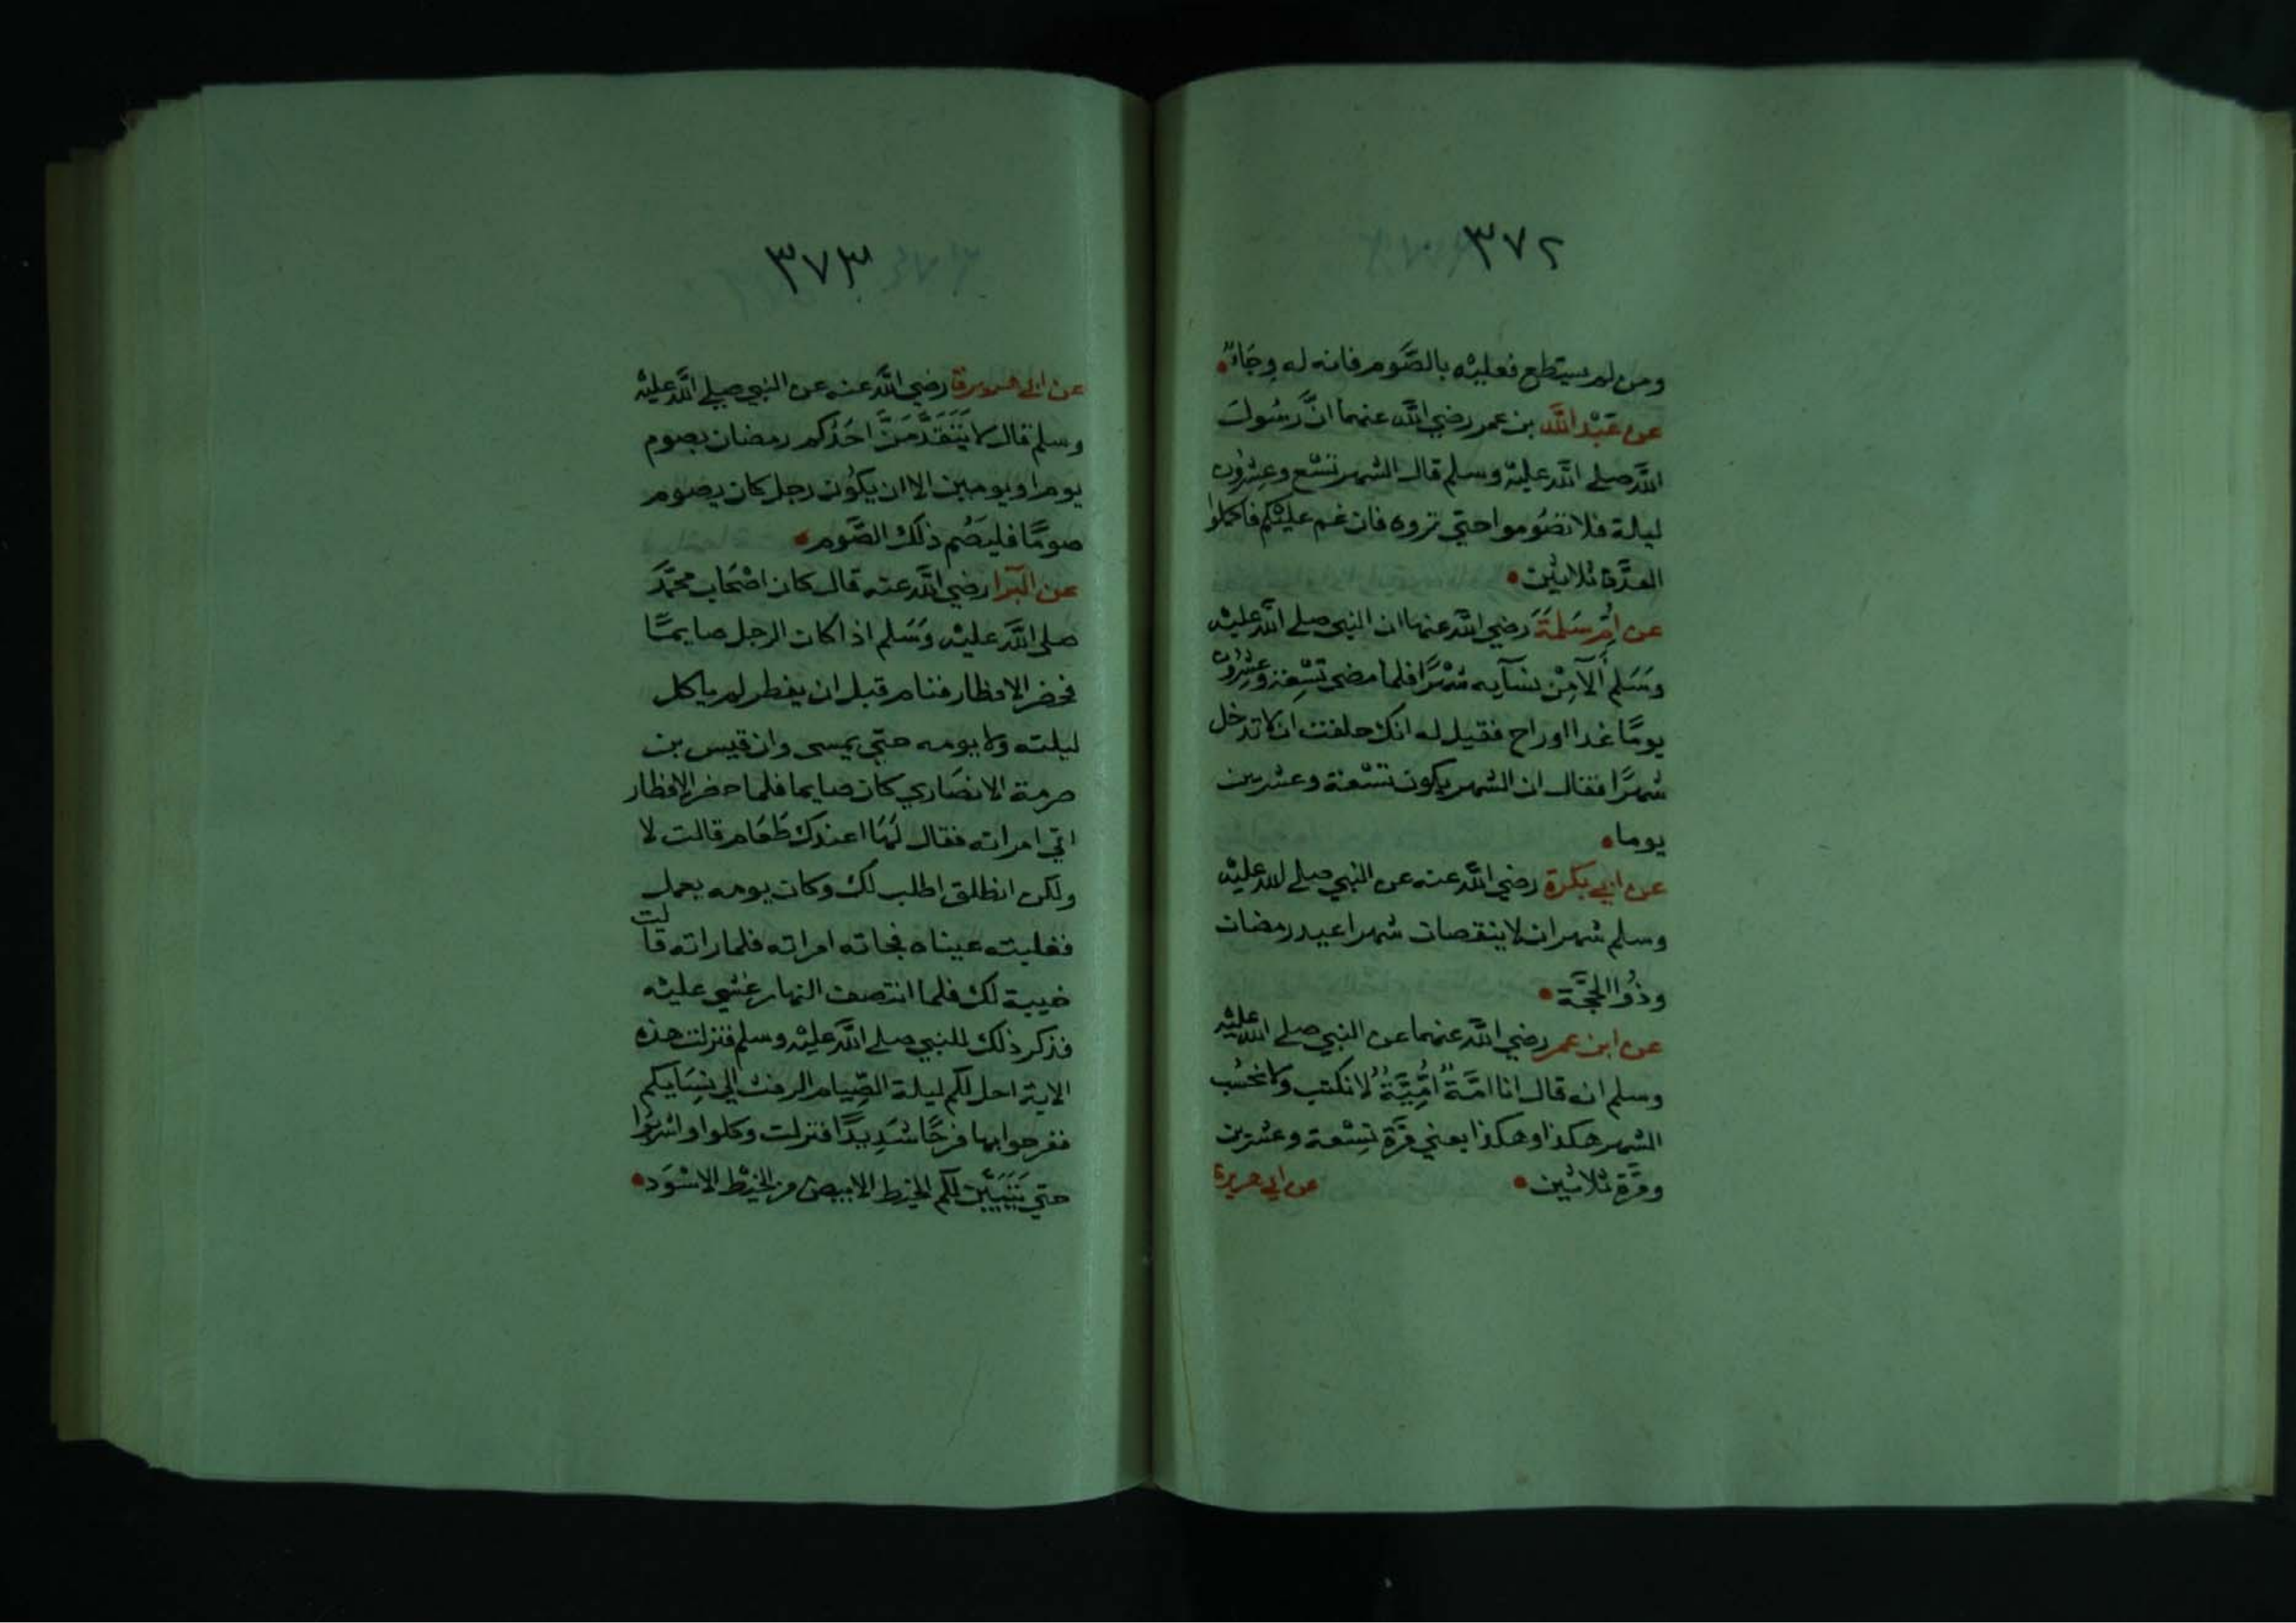 ٣٧٢
ومن لم يستطع فعليْه بالصَّوم فانه له وِجَاءٌ
عن عَبْد اللَّه بن عمر رضي اللَّه عنهما انَّ رسُولَ
اللَّه صلي اللَّه عليْه وسلم قال الشهر تسْع وعِشْرُون
ليلة فلا تصُوموا حتي تروه فان غم عليْكم فاكملوا
العدَّة ثلاثين
عن اُمِّ سَلمَةَ رضي اللَّه عنها ان النبي صلي اللَّه عليْه
وَسَلم اَلآ مِنْ نسآيه شهْرًا فلما مضي تسْعة وعِشْرون
يومًا غدا اوراح فقيل له انك حلفت ان لا تدخل
شهرًا فقال ان الشهر يكون تسْعة وعشرين
يوما
عن ابي بكرة رضي اللَّه عنه عن النبي صلي الله عليْه
وسلم شهران لا ينقصان شهرا عيد رمضان
وذُوا الحجَّة
عن ابن عمر رضي اللَّه عنهما عن النبي صلي اللَّه عليْه
وسلم انه قال انا امَّةٌ اُمِّيَّةٌ لا نكتب ولا نحْسُب
الشهر هكذا وهكذا يعني مرَّة تِسْعة وعشْرين
ومرَّة ثلاثين
عن ابي هريرة
٣٧٣
عن ابي هريرة رضي اللَّه عنه عن النبي صلي اللَّه عليْه
وسلم قال لا يَتَقَدَّمَنَّ احَدُكم رمضان بصوم
يوم او يومين الا ان يكُون رجل كان يصوم
صومًا فليَصُم ذلك الصَّوم
عن البَرا رضي اللَّه عنه قال كان اصْحَاب محمَّد
صلي اللَّه عليْه وَسَلم اذا كان الرجل صايمًا
فحضر الافطار فنام قبل ان يفطر لم ياكل
ليلته ولا يومه حتي يمسى وان قيس بن
صرمة الانصَاري كان صايما فلما حضر الافطار
اتي امراته فقال لَهَا اعندك طَعَام قالت لا
ولكن انطلق اطلب لك وكان يومه يعمل
فغلبته عيناه فجاته امراته فلما راته قالت
خيبة لك فلما انتصف النهار غشي عليْه
فذكر ذلك للنبي صلي اللَّه عليْه وسلم فنزلت هذه
الاية احل لكم ليلة الصِّيام الرفث الي نِسَايكم
ففرحوا بها فرحًا شَدِيدًا فنزلت وكلوا واشربُوا
حتي يَتَبَيَّن لكم الخيط الابيض من الخيْط الاسْوَد